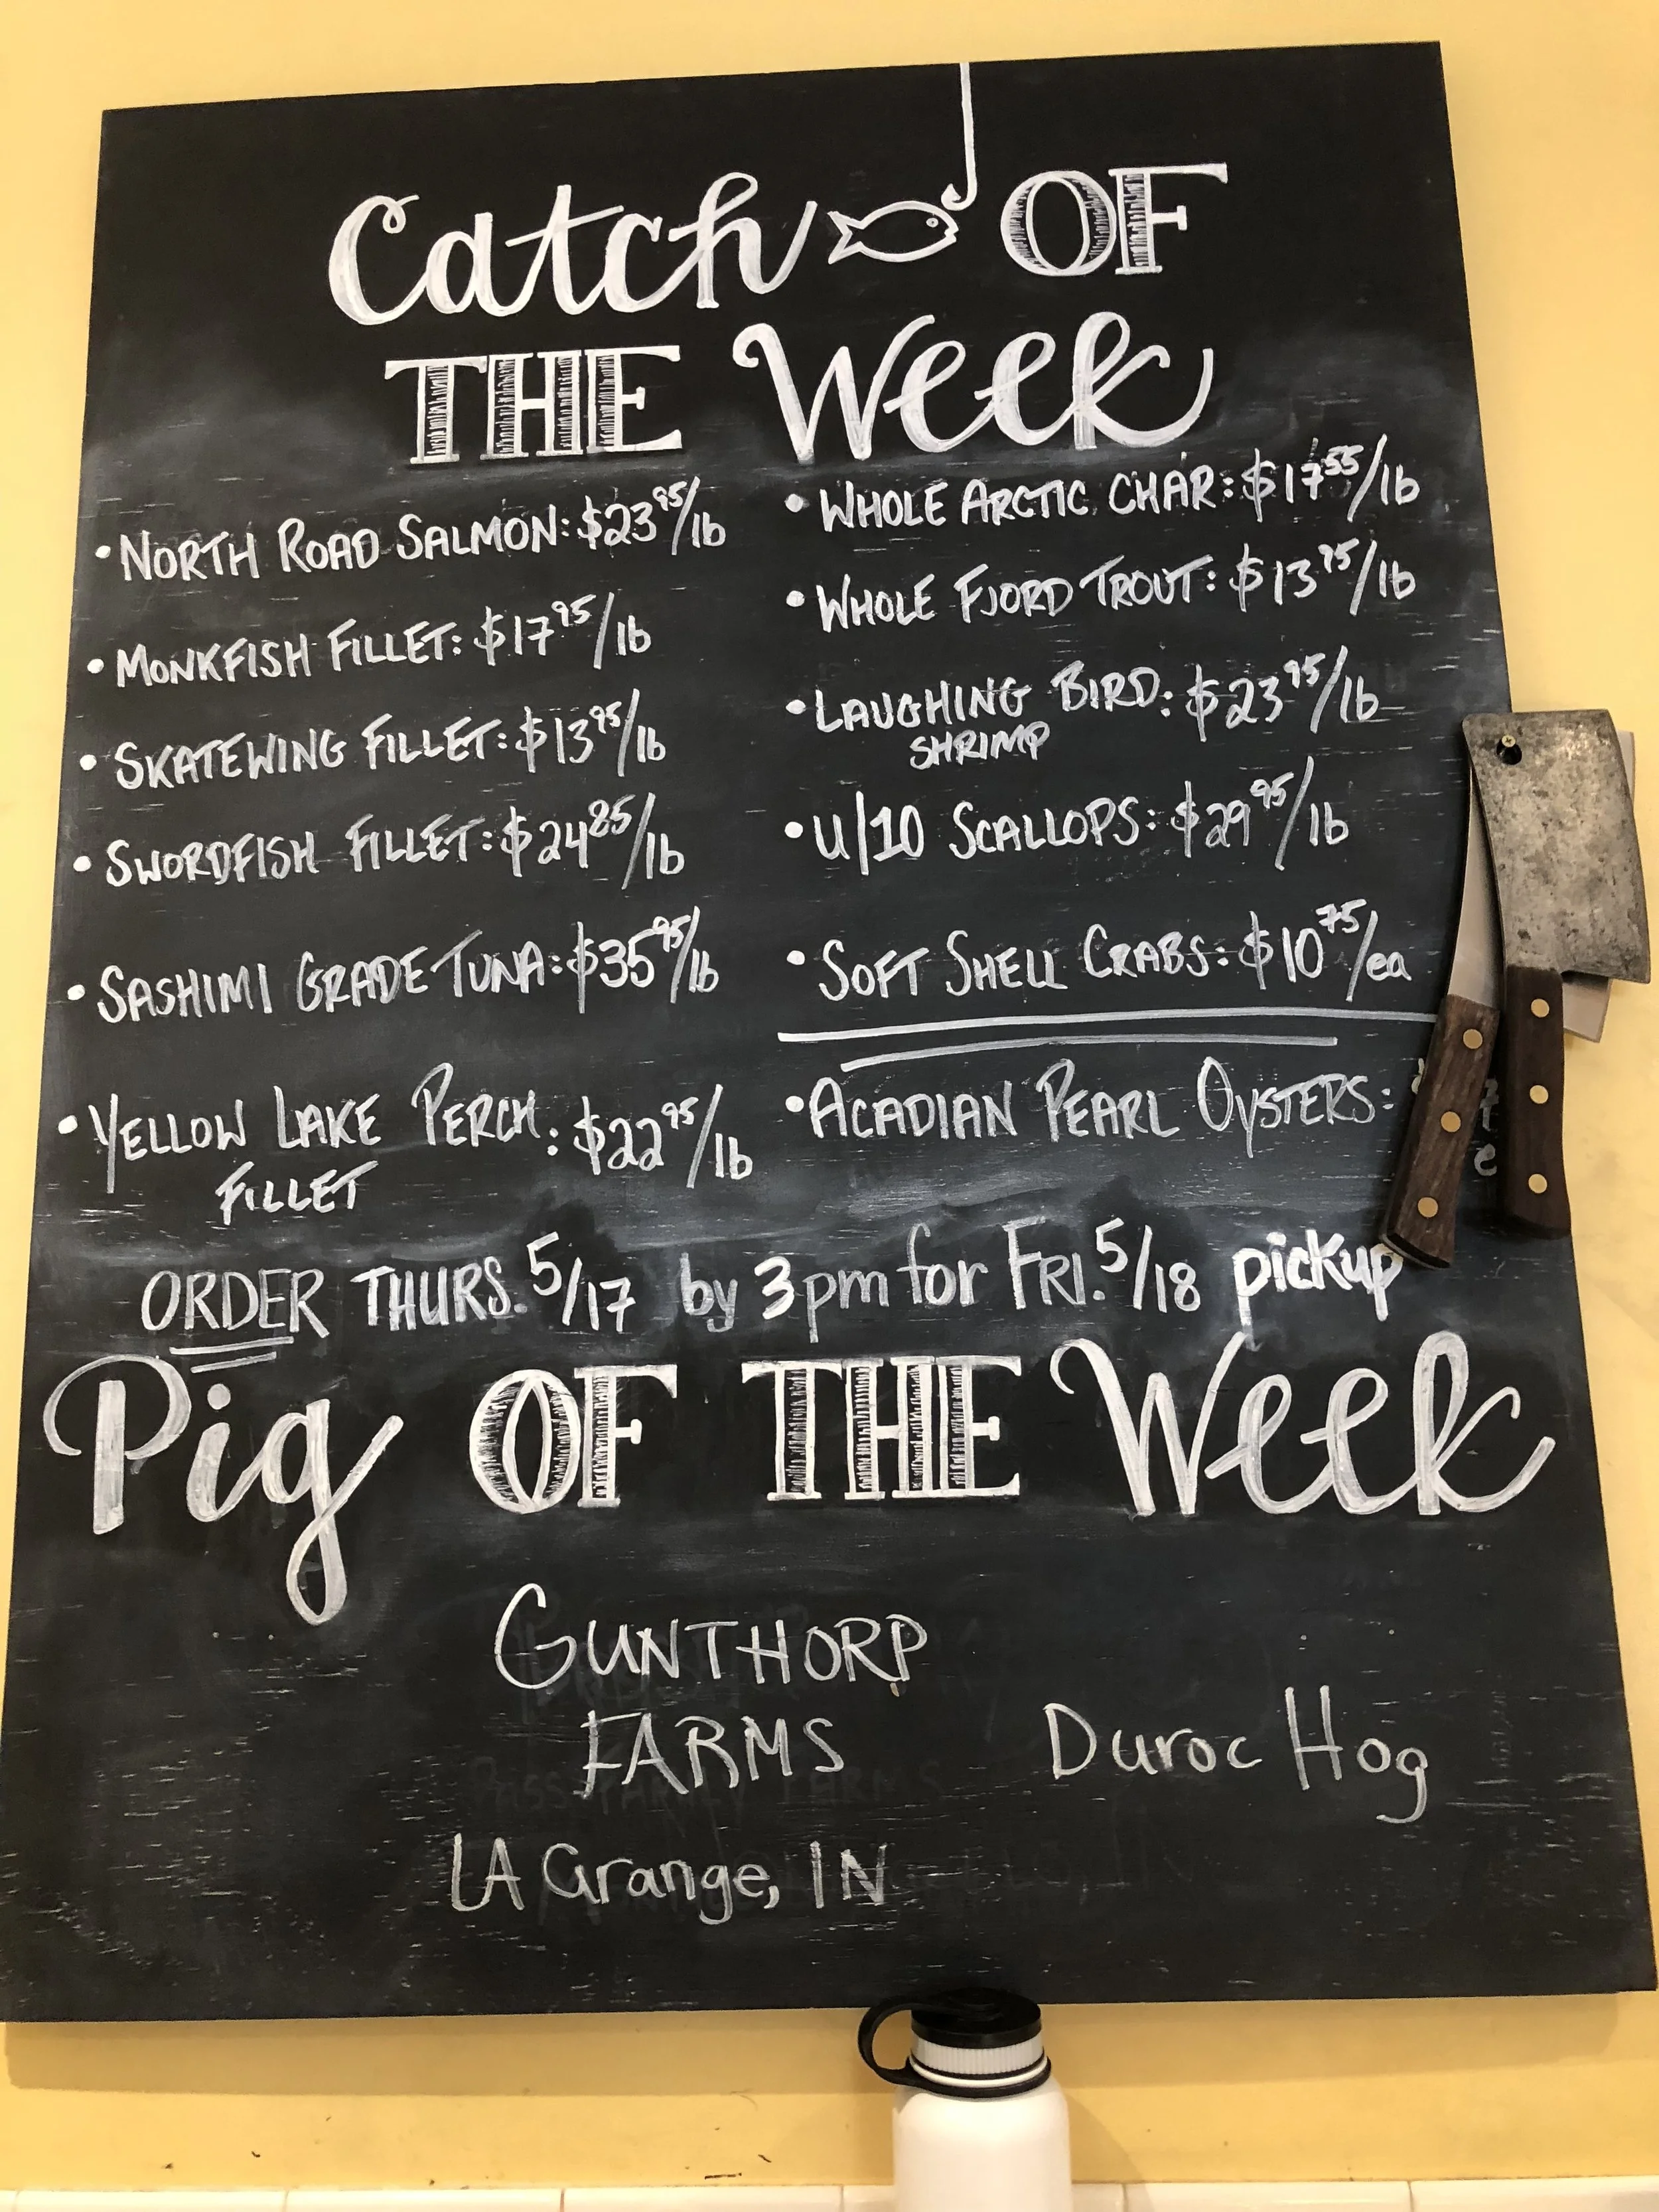 Catch OF
THE Week
• NORTH ROAD SALMON: $23.95/lb
• MONKFISH FILLET: $17.95/lb
• SKATEWING FILLET: $13.95/lb
• SWORDFISH FILLET: $24.85/lb
• SASHIMI GRADE TUNA: $35.95/lb
• YELLOW LAKE PERCH: $22.95/lb
FILLET
• WHOLE ARCTIC CHAR: $17.55/lb
• WHOLE FJORD TROUT: $13.75/lb
• LAUGHING BIRD: $23.95/lb
SHRIMP
• U/10 SCALLOPS: $29.95/lb
• SOFT SHELL CRABS: $10.75/ea
• ACADIAN PEARL OYSTERS:
ORDER THURS. 5/17 by 3pm for FRI. 5/18 pickup
Pig OF THE Week
GUNTHORP
FARMS
Duroc Hog
LA Grange, IN